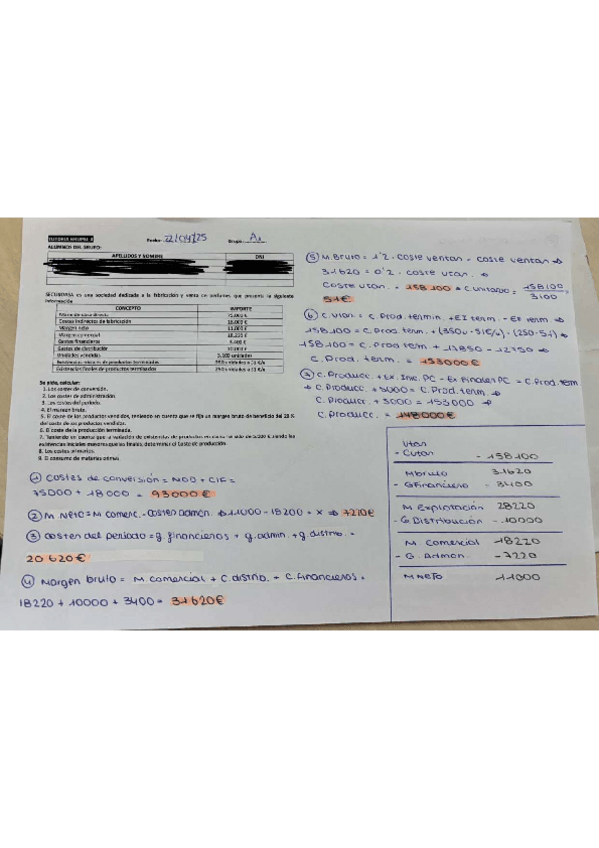 Fecha: 22/04/25 Grupo: A1
ALUMNOS DEL GRUPO:
APELLIDOS Y NOMBRE DNI
es una sociedad dedicada a la fabricación y venta de uniformes que presenta la siguiente
información
CONCEPTO IMPORTE
Costes indirectos de fabricación 18.000 €
Margen neto 11.000 €
Margen comercial 18.220 €
Costes financieros 3.400 €
Costes de distribución 10.000 €
Unidades vendidas 3.100 unidades
Se pide, calcular:
1. Los costes de conversión.
2. Los costes de administración
3. Los costes del periodo.
4. El margen bruto.
5. El coste de los productos vendidos, teniendo en cuenta que se fija un margen bruto de beneficio del 20 %
del coste de los productos vendidos.
6. El coste de la producción terminada.
7. Teniendo en cuenta que la variación de existencias de productos en curso ha sido de 5.000 € siendo las
existencias iniciales mayores que las finales, determinar el Coste de producción.
8. Los costes primarios.
9. El consumo de materias primas
① Costes de conversión = MOD + CIF =
75000 + 18000 = 93000 €
② M Neto = M comerc. - Costes admon. ⇒ 11000 - 18200 = x ⇒ 7210€
③ Costes del periodo = g. financieros + g. admin. + g. distrib. =
20 620 €
④ Margen bruto = M comercial + C distrib. + C. financieros =
18220 + 10000 + 3400 = 31620€
⑤ M. Bruto = 1'2 · coste ventas - coste ventas ⇒
31620 = 0'2 ·
= 158100 ⇒ C. unitario = 158100/3100 =
51€
158.100 = C. Prod. term. + (350u · 51€/u) - (250 · 51) ⇒
158100 = C. Prod term + 17850 - 12750 ⇒
C. Prod. term. = 153000 €
C. Producc. + 5000 = C. Prod. term
C. Producc. + 5000 = 153000 ⇒
C. Producc. = 148000€
Vtas
- Cvtas - 158100
M bruto 31620
- G Financiero - 3400
M Explotación 28220
- G. Distribución - 10000
M Comercial 18220
- G. Admon. - 7220
M Neto 11000